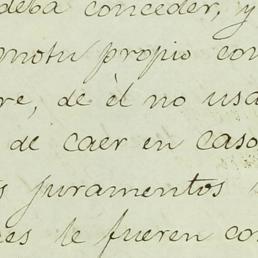 deba conceder, y
motu propio con
re, de èl no usa
de caer en caso
s juramentos
es le fueren co